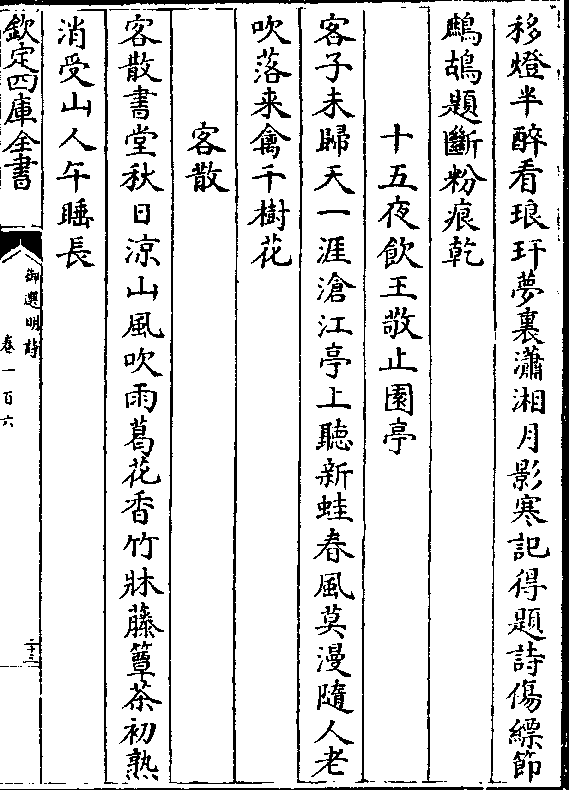 移燈半醉看琅玕夢裏瀟湘月影寒記得題詩傷縹節
鷓鴣題斷粉痕乾
十五夜飲王敬止園亭
客子未歸天一涯滄江亭上聽新蛙春風莫漫隨人老
吹落来禽千樹花
客散
客散書堂秋日涼山風吹雨葛花香竹牀藤簟茶初熟
消受山人午睡長
欽定四庫全書
御選明詩
卷一百六
二十三